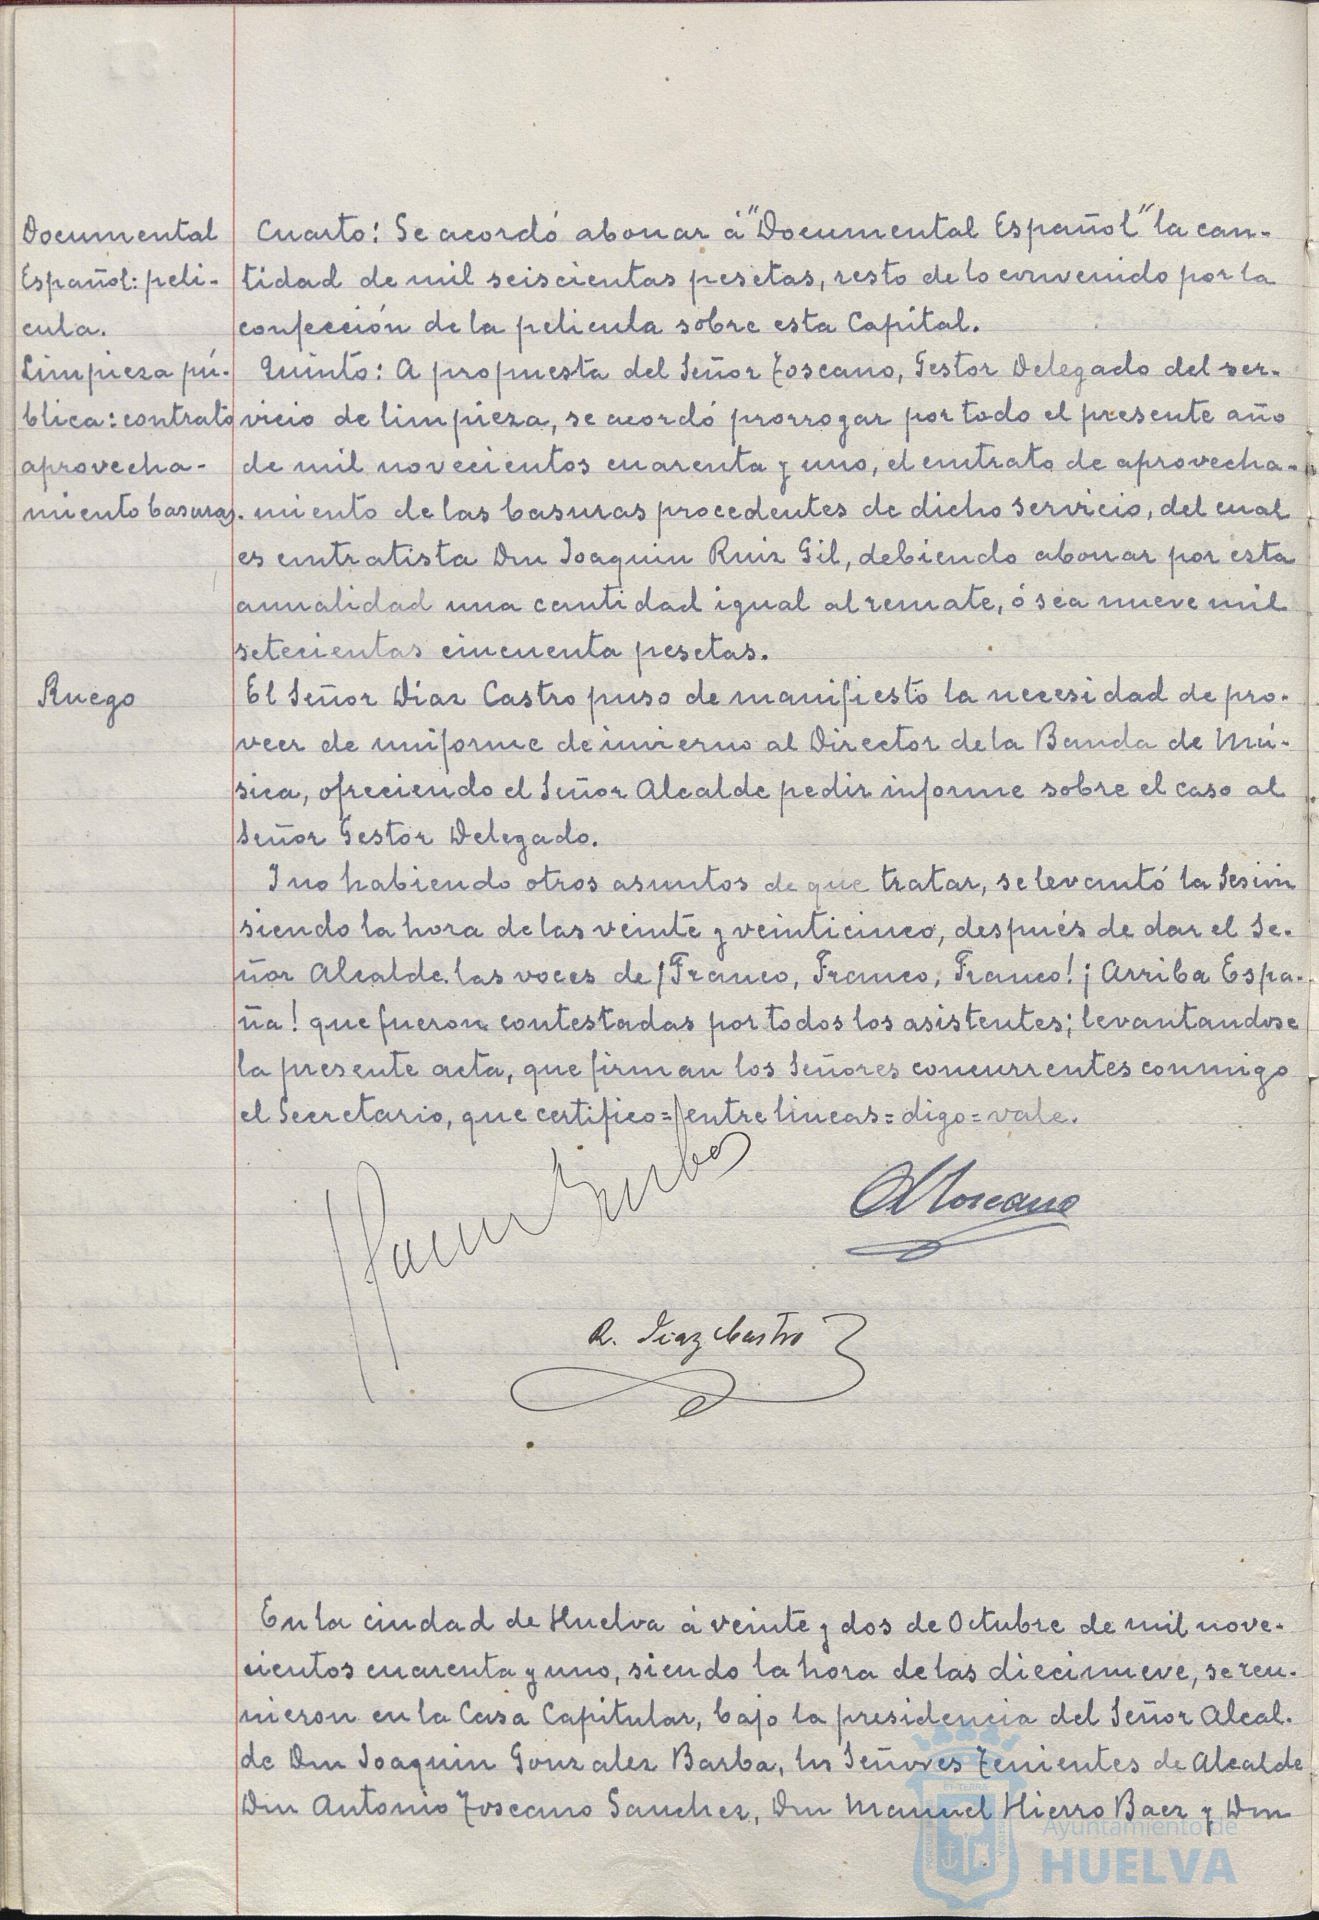 Documental
Español: peli-
cula.
Cuarto: Se acordó abonar á "Documental Español" la can-
tidad de mil seiscientas pesetas, resto de lo convenido por la
confección de la pelicula sobre esta Capital.
Limpieza pú-
blica: contrato
aprovecha-
miento basuras.
Quinto: A propuesta del Señor Toscano, Gestor Delegado del ser-
vicio de limpieza, se acordó prorrogar por todo el presente año
de mil novecientos cuarenta y uno, el contrato de aprovecha-
miento de las basuras procedentes de dicho servicio, del cual
es contratista Don Joaquin Ruiz Gil, debiendo abonar por esta
anualidad una cantidad igual al remate, ó sea nueve mil
setecientas cincuenta pesetas.
Ruego
El Señor Díaz Castro puso de manifiesto la necesidad de pro-
veer de uniforme de invierno al Director de la Banda de Mú-
sica, ofreciendo el Señor Alcalde pedir informe sobre el caso al
Señor Gestor Delegado.
Y no habiendo otros asuntos de que tratar, se levantó la Sesión
siendo la hora de las veinte y veinticinco, después de dar el Se-
ñor Alcalde las voces de ¡Franco, Franco, Franco! ¡Arriba Espa-
ña! que fueron contestadas por todos los asistentes; levantandose
la presente acta, que firman los Señores concurrentes conmigo
el Secretario, que certifico=/entre lineas=digo=vale.
Toscano
R. Diaz Castro
En la ciudad de Huelva á veinte y dos de Octubre de mil nove-
cientos cuarenta y uno, siendo la hora de las diecinueve, se reu-
nieron en la Casa Capitular, bajo la presidencia del Señor Alcal-
de Don Joaquin Gonzalez Barba, los Señores Tenientes de Alcalde
Don Antonio Toscano Sanchez, Don Manuel Hierro Baez y Don
Ayuntamiento de
HUELVA